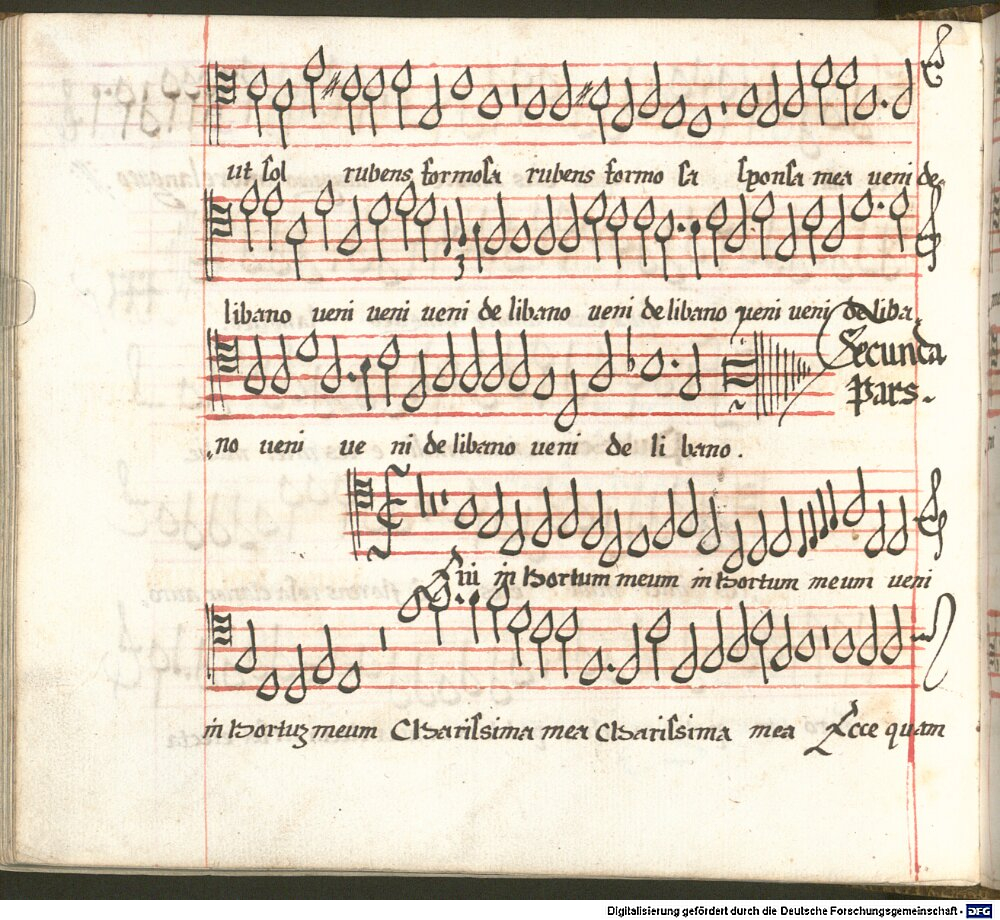 ut sol rubens formosa rubens formo sa sponsa mea veni de
3
libano veni veni veni de libano veni de libano veni veni de liba
Secunda
Pars.
no veni ve ni de libano veni de li bano.
in hortum meum in hortum meum veni
in hortuʒ meum Charissima mea Charissima mea Ecce quam
Digitalisierung gefördert durch die Deutsche Forschungsgemeinschaft - DFG